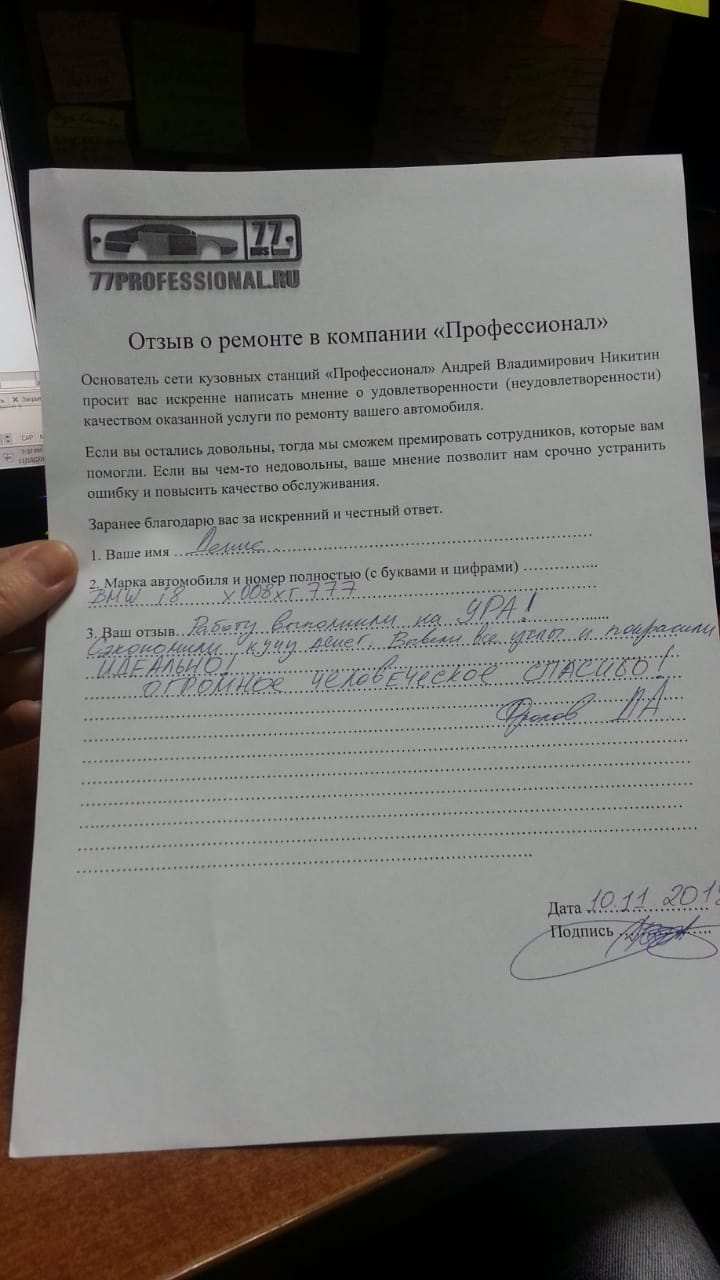 77
RUS
77PROFESSIONAL.RU
Отзыв о ремонте в компании «Профессионал»
Основатель сети кузовных станций «Профессионал» Андрей Владимирович Никитин
просит вас искренне написать мнение о удовлетворенности (неудовлетворенности)
качеством оказанной услуги по ремонту вашего автомобиля.
Если вы остались довольны, тогда мы сможем премировать сотрудников, которые вам
помогли. Если вы чем-то недовольны, ваше мнение позволит нам срочно устранить
ошибку и повысить качество обслуживания.
Заранее благодарю вас за искренний и честный ответ.
1. Ваше имя Денис
2. Марка автомобиля и номер полностью (с буквами и цифрами)
BMW i8 х008хт 777
3. Ваш отзыв. Работу выполнили на УРА!
Сэкономили кучу денег. Вовели все узелы и покрасили
ИДЕАЛЬНО!
ОГРОМНОЕ ЧЕЛОВЕЧЕСКОЕ СПАСИБО!
Фролов
Дата 10.11 201
Подпись